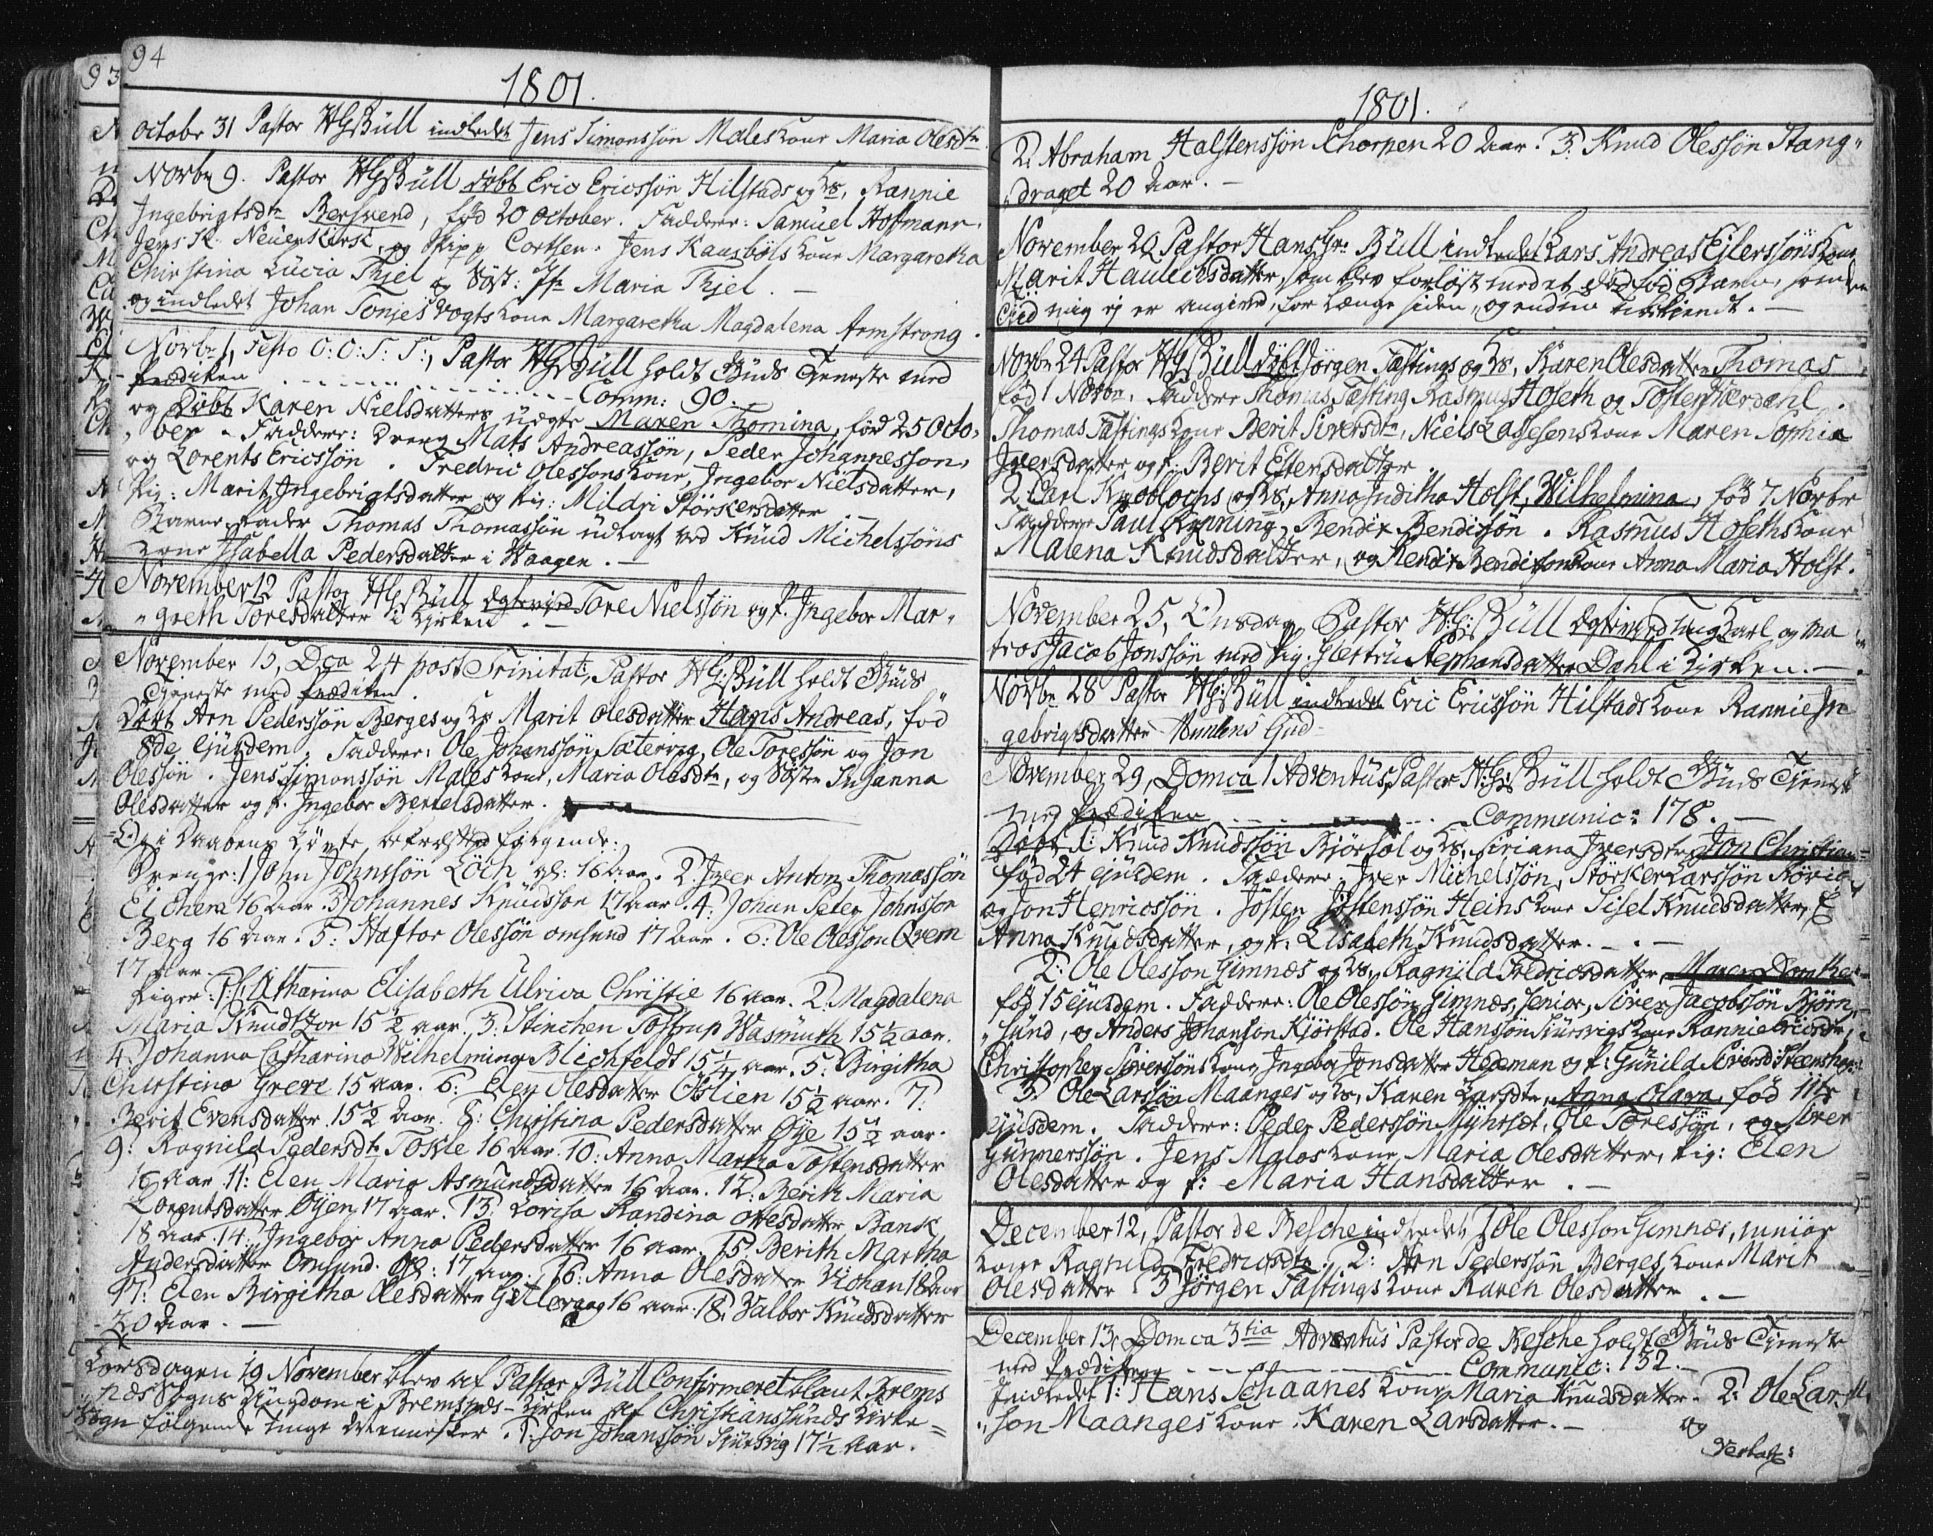 93
94
1801.
Octobr 31 Pastor HG Büll indledet Jens Simonssøn Males kone Maria Olesdtr
Novbr 9. Pastor HG Büll døbt Eric Ericssøn Hilstads og Hs, Rannie
Ingebrigtsdtr Bersvend, fød 20 October. Faddere: Samuel Hofmann,
Jens K. Neuenskirsk, og Skipp Cortsen. Jens Kaasbøls kone Margaretha
Christina Lucia Thiel og Søst: Jfr Maria Thiel. —
og indledet Johan Tonjes Vogts kone Margaretha Magdalena Armstrong.
Novbr 1, Festo O: O: S: S:, Pastor HG Büll holdt Guds Tjeneste med
Prædiken - - - - - Comm: 90.
og døbt Karen Nielsdatters uægte Maren Thomina, fød 25 Octo„
„ber - Faddere: Dreng Mats Andreassøn, Peder Johannessøn,
og Lorents Ericssøn. Fredric Olessons kone, Ingebor Nielsdatter,
Pig: Marit Ingebrigtsdatter og Pig: Mildri Størkersdatter
Barne-Fader Thomas Thomassøn udlagt ved Knud Michelssøns
kone Isabella Pedersdatter i Vaagen. —
November 12 Pastor HG Büll Egtevied Tore Nielssøn og P. Ingebor Mar„
„greth Toresdatter i Kirken. —
November 15, Dca 24 post Trinitat:, Pastor HG: Büll holdt Guds
Tjeneste med Prædiken.
Døbt Arn Pederssøn Berges og Hs Marit Olesdatter Hans Andreas, fød
8de ejusdem. Faddere: Ole Johanssøn Sætervig, Ole Toressøn og Jon
Olessøn. Jens Simonssøn Males kone, Maria Olesdtr, og Søstr Susanna
Olesdatter og P. Ingebor Bertelsdatter.
Og i Daabens Løvte befæstted følgende:
Drenge: 1 John Johnssøn Loch gl: 16 aar. 2. Iver Anton Thomassøn
Eichen 16 aar. 3 Johannes Knudsson 17 aar. 4: Johan Peter Johnsson
Berg 16 aar. 5: Haftor Olessøn Omsund 17 aar. 6: Ole Olesson Qvern
17 Aar.
Piger: 1: Catharina Elisabeth Ulrica Christie 16 aar. 2. Magdalena
Maria Knudtzon 15 1/2 aar. 3: Stinchen Tostrup Wasmuth 15 1/2 aar.
4: Johanna Catharina Wilhelmina Blichfeldt 15 1/4 aar. 5: Birgitha
Christina Greve 15 aar. 6: Elen Olesdatter Oslien 15 1/2 aar. 7:
Berit Evensdatter 15 1/2 aar. 8: Christina Pedersdatter Øye 15 1/2 aar.
9: Ragnild Pedersdtr Tokle 16 aar. 10: Anna Martha Tostensdatter
16 Aar. 11: Elen Maria Asmundsdatter 16 aar. 12: Berith Maria
Lorentsdatter Øyen 17 aar. 13: Lovisa Randina Ottesdatter Bansk
18 aar. 14: Ingebor Anna Pedersdatter 16 aar. 15. Berith Martha
Andersdatter Omsund. gl: 17 aar. 16: Anna Olesdatter 18 aar
17: Elen Birgitha Olesdatter 16 aar. 18. Valbor Knudsdatter
20 aar. —
Torsdagen 19 November blev af Pastor Büll Confirmeret blant Brems
næs Sogns Ungdom i Bremsnæs-Kirken af Christianssunds Kirke=
Sogn følgende unge Mennesker. 1: Jon Johanssøn Sjursvig 17 1/2 Aar.
1801.
2: Abraham Halstenssøn Thorpen 20 Aar. 3: Knud Olessøn Stang„
„draget 20 Aar. —
November 20 Pastor Hans Gr. Büll indledet Lars Andreas Ejlerssøns kone
Marit Haulicksdatter, som blev forløst med et dødfød Barn, som
mig ej er angived, for længe siden, og endnu ubekiendt. —
Novbr 24 Pastor HG Büll døbt Jørgen Tastings og Hs. Karen Olesdatter Thomas
fød 1 Novbr. Faddere Thomas Tasting Rasmus Hoseth og Tosten Værdahl.
Thomas Tastings kone Berit Siversdtr, Niels Lassesens kone Maren Sophia
Iversdatter og P. Berit Estensdatter
2 Carl Knoblochs og Hs, Anna Juditha Holst, Wilhelmina, fød 7 Novbr
Faddere Paul Rynning, Bendix Bendixøn. Rasmus Hoseths kone
Malena Knudsdatter, og Bendix Bendixsons kone Anna Maria Holst.
November 25, Onsdag, Pastor H: G: Büll Egteviед Ung Karl og ma„
tros Jacob Jonssøn med Pig. Gjertru Stephansdatter Dahl i Kirken. —
Novbr 28 Pastor HG: Büll indledet Eric Ericssøn Hilstads kone Rannie In
„gebrigtsdatter
November 29, Domca 1 Adventus, Pastor H: G: Büll holdt Guds Tjeneste
med Prædiken - - - - Communic: 178. —
Døbt 1: Knud Knudssøn Bjørsøl og Hs, Siriana Iversdtr Jon Christian
fød 24 ejusdem. Faddere: Iver Michelssøn, Størker Larssøn
og Jon Henricssøn. Josten Jostenssøn Heins kone Sisel Knudsdatter,
Anna Knudsdatter, og P. Lisabeth Knudsdatter. —
2: Ole Olesson Gimnæs og Hs, Ragnild Fredricsdatter, Maren Dorthea
fød 15 ejusdem. Faddere: Ole Olessøn Gimnæs, senior, Siver Jacobssøn Bjørn„
„sund, og Anders Johanson Kjørstad. Ole Hanssøn Sjursvigs kone Rannie Ericsdtr,
Christopher Siverssøns kone Ingebor Jonsdatter Hedeman og P: Gunild Siversdtr
3: Ole Larssøn Maanges og Hs, Karen Larsdtr, Anna Olava, fød 11te
ejusdem. Faddere: Peder Pederssøn Myhrset, Ole Toressøn, og Siver
Gunnerssøn. Jens Males kone, Maria Olesdatter, Pig: Elen
Olesdatter og P: Maria Hansdatter. —
December 12, Pastor de Besche indledet 1 Ole Olesson Gimnæs, junior
kone Ragnild Fredricsdtr. 2: Arn Pederssøn Berges kone Marit
Olesdatter 3 Jørgen Tastings kone Karen Olesdatter. —
December 13: Domca 3tia Adventus Pastor de Besche holdt Guds Tjeneste
med Prædiken - - - - Communic: 132. —
Indledet 1: Hans Schaanes kone Maria Knudsdatter. 2: Ole Lar„
„son Maanges kone Karen Larsdatter. —
og
Verbatr: